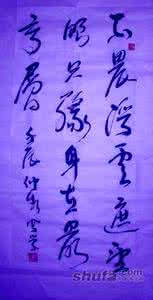 不畏浮雲遮望
眼只緣身在最
高層
壬辰仲秋
shufa.com